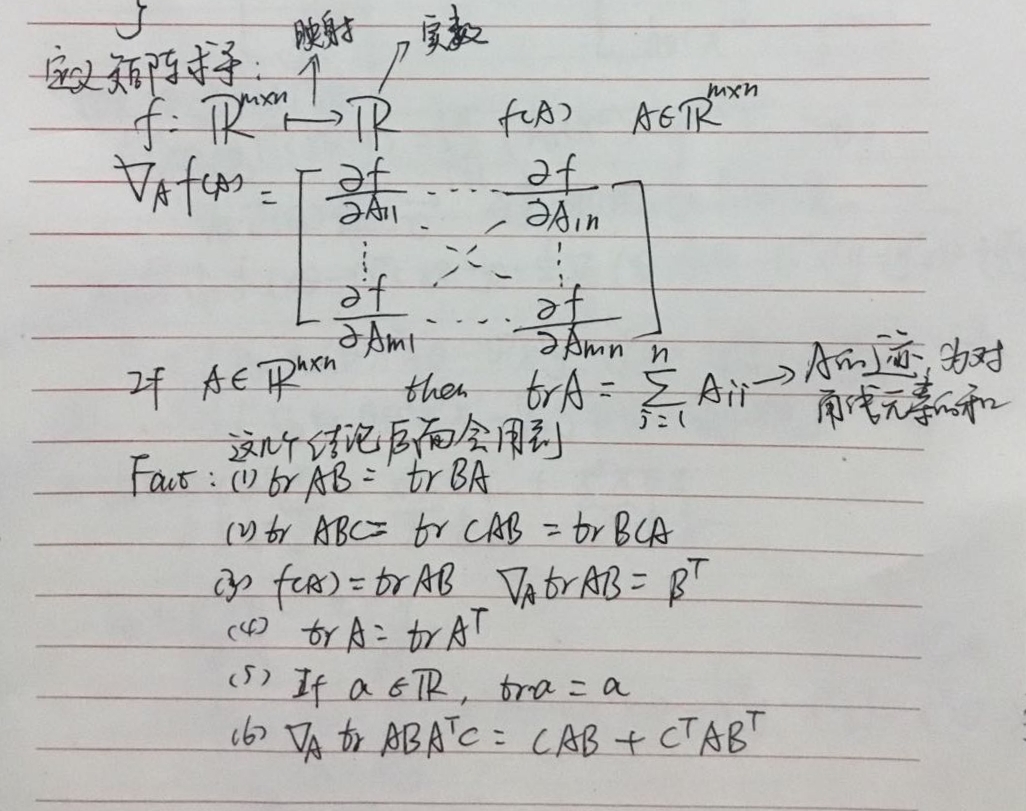 }
映射 实数
定义矩阵求导:
f: ℝ^{m×n} ⟼ ℝ f(A) A∈ℝ^{m×n}
∇_A f(A) = [ ∂f/∂A_{11} ····· ∂f/∂A_{1n}
⋮ ⋮
∂f/∂A_{m1} ····· ∂f/∂A_{mn} ]
If A∈ℝ^{n×n} then trA = ∑_{i=1}^{n} A_{ii} → A的迹,为对
角线元素的和
这几个结论后面会用到
Fact: (1) tr AB = tr BA
(2) tr ABC = tr CAB = tr BCA
(3) f(A) = tr AB ∇_A tr AB = B^T
(4) tr A = tr A^T
(5) If a ∈ ℝ, tra = a
(6) ∇_A tr ABA^TC = CAB + C^TAB^T